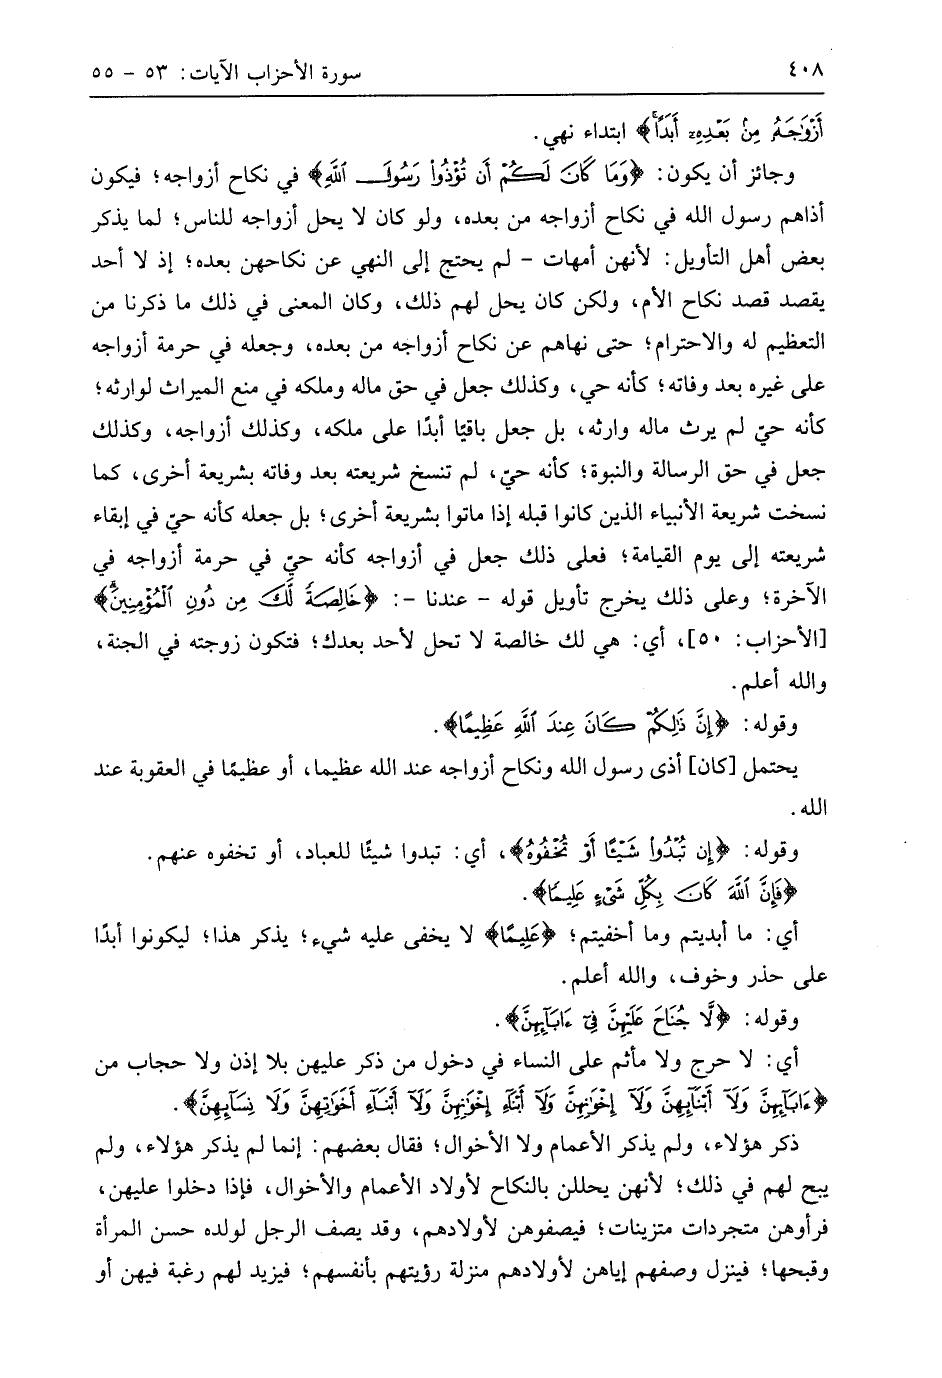 ٤٠٨
سورة الأحزاب الآيات: ٥٣ - ٥٥
أَزْوَٰجَهُۥ مِنۢ بَعْدِهِۦٓ أَبَدًاۚ﴾ ابتداء نهي.
وجائز أن يكون: ﴿وَمَا كَانَ لَكُمْ أَن تُؤْذُوا۟ رَسُولَ ٱللَّهِ﴾ في نكاح أزواجه؛ فيكون
أذاهم رسول الله في نكاح أزواجه من بعده، ولو كان لا يحل أزواجه للناس؛ لما يذكر
بعض أهل التأويل: لأنهن أمهات - لم يحتج إلى النهي عن نكاحهن بعده؛ إذ لا أحد
يقصد قصد نكاح الأم، ولكن كان يحل لهم ذلك، وكان المعنى في ذلك ما ذكرنا من
التعظيم له والاحترام؛ حتى نهاهم عن نكاح أزواجه من بعده، وجعله في حرمة أزواجه
على غيره بعد وفاته؛ كأنه حي، وكذلك جعل في حق ماله وملكه في منع الميراث لوارثه؛
كأنه حيّ لم يرث ماله وارثه، بل جعل باقيًا أبدًا على ملكه، وكذلك أزواجه، وكذلك
جعل في حق الرسالة والنبوة؛ كأنه حيّ، لم تنسخ شريعته بعد وفاته بشريعة أخرى، كما
نسخت شريعة الأنبياء الذين كانوا قبله إذا ماتوا بشريعة أخرى؛ بل جعله كأنه حيّ في إبقاء
شريعته إلى يوم القيامة؛ فعلى ذلك جعل في أزواجه كأنه حيّ في حرمة أزواجه في
الآخرة؛ وعلى ذلك يخرج تأويل قوله - عندنا -: ﴿خَالِصَةً لَّكَ مِن دُونِ ٱلْمُؤْمِنِينَۗ﴾
[الأحزاب: ٥٠]، أي: هي لك خالصة لا تحل لأحد بعدك؛ فتكون زوجته في الجنة،
والله أعلم.
وقوله: ﴿إِنَّ ذَٰلِكُمْ كَانَ عِندَ ٱللَّهِ عَظِيمًا﴾.
يحتمل [كان] أذى رسول الله ونكاح أزواجه عند الله عظيما، أو عظيمًا في العقوبة عند
الله.
وقوله: ﴿إِن تُبْدُوا۟ شَيْـًٔا أَوْ تُخْفُوهُ﴾، أي: تبدوا شيئًا للعباد، أو تخفوه عنهم.
﴿فَإِنَّ ٱللَّهَ كَانَ بِكُلِّ شَىْءٍ عَلِيمًا﴾.
أي: ما أبديتم وما أخفيتم؛ ﴿عَلِيمًا﴾ لا يخفى عليه شيء؛ يذكر هذا؛ ليكونوا أبدًا
على حذر وخوف، والله أعلم.
وقوله: ﴿لَّا جُنَاحَ عَلَيْهِنَّ فِىٓ ءَابَآئِهِنَّ﴾.
أي: لا حرج ولا مأثم على النساء في دخول من ذكر عليهن بلا إذن ولا حجاب من
﴿ءَابَآئِهِنَّ وَلَآ أَبْنَآئِهِنَّ وَلَآ إِخْوَٰنِهِنَّ وَلَآ أَبْنَآءِ إِخْوَٰنِهِنَّ وَلَآ أَبْنَآءِ أَخَوَٰتِهِنَّ وَلَا نِسَآئِهِنَّ﴾.
ذكر هؤلاء، ولم يذكر الأعمام ولا الأخوال؛ فقال بعضهم: إنما لم يذكر هؤلاء، ولم
يبح لهم في ذلك؛ لأنهن يحللن بالنكاح لأولاد الأعمام والأخوال، فإذا دخلوا عليهن،
فرأوهن متجردات متزينات؛ فيصفوهن لأولادهم، وقد يصف الرجل لولده حسن المرأة
وقبحها؛ فينزل وصفهم إياهن لأولادهم منزلة رؤيتهم بأنفسهم؛ فيزيد لهم رغبة فيهن أو